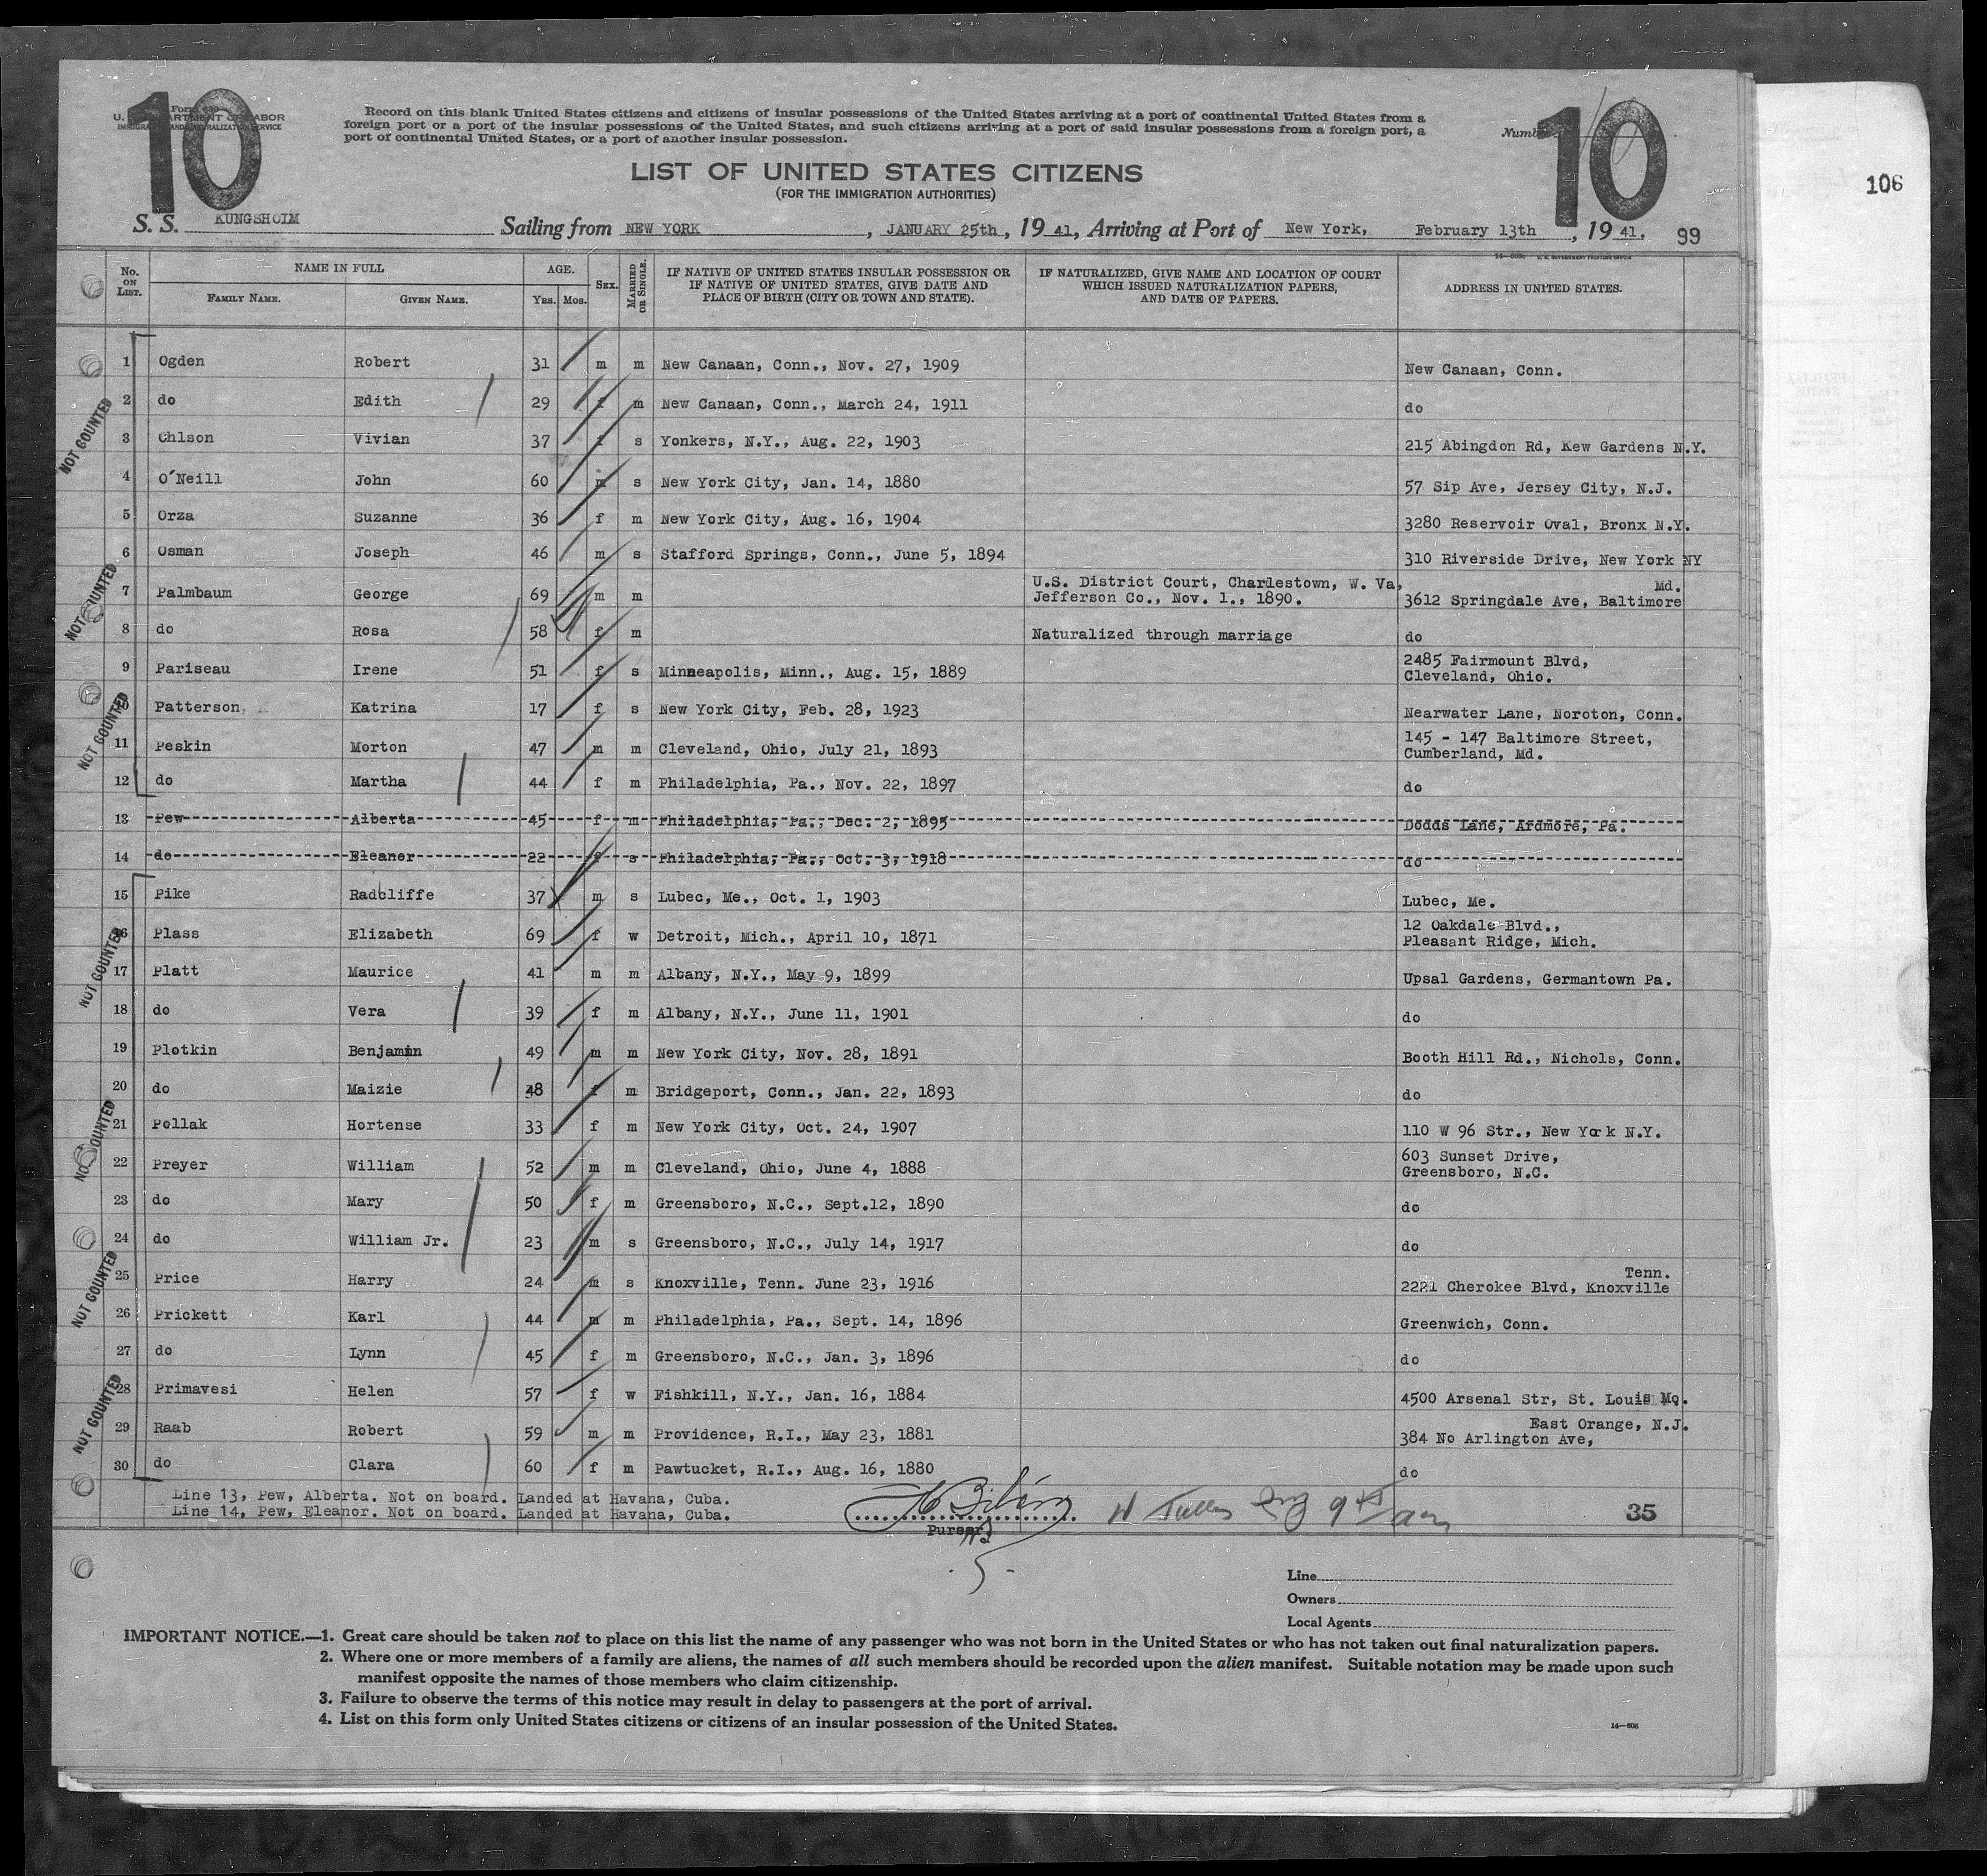 10
Form 630
U. S. DEPARTMENT OF LABOR
IMMIGRATION AND NATURALIZATION SERVICE
Record on this blank United States citizens and citizens of insular possessions of the United States arriving at a port of continental United States from a
foreign port or a port of the insular possessions of the United States, and such citizens arriving at a port of said insular possessions from a foreign port, a
port of continental United States, or a port of another insular possession.
10
106
LIST OF UNITED STATES CITIZENS
(FOR THE IMMIGRATION AUTHORITIES)
S. S. KUNGSHOLM Sailing from NEW YORK, JANUARY 25th, 19 41, Arriving at Port of New York, February 13th, 19 41. 99
No. ON LIST. NAME IN FULL FAMILY NAME. GIVEN NAME. AGE. YRS. MOS. SEX. MARRIED OR SINGLE. IF NATIVE OF UNITED STATES INSULAR POSSESSION OR IF NATIVE OF UNITED STATES, GIVE DATE AND PLACE OF BIRTH (CITY OR TOWN AND STATE). IF NATURALIZED, GIVE NAME AND LOCATION OF COURT WHICH ISSUED NATURALIZATION PAPERS, AND DATE OF PAPERS. ADDRESS IN UNITED STATES.
1 Ogden Robert 31 m m New Canaan, Conn., Nov. 27, 1909 New Canaan, Conn.
2 do Edith 29 f m New Canaan, Conn., March 24, 1911 do
NOT COUNTED
3 Ohlson Vivian 37 f s Yonkers, N.Y., Aug. 22, 1903 215 Abingdon Rd, Kew Gardens N.Y.
4 O'Neill John 60 m s New York City, Jan. 14, 1880 57 Sip Ave, Jersey City, N.J.
5 Orza Suzanne 36 f m New York City, Aug. 16, 1904 3280 Reservoir Oval, Bronx N.Y.
6 Osman Joseph 46 m s Stafford Springs, Conn., June 5, 1894 310 Riverside Drive, New York NY
NOT COUNTED
7 Palmbaum George 69 m m U.S. District Court, Charlestown, W. Va, Jefferson Co., Nov. 1., 1890. 3612 Springdale Ave, Baltimore Md.
8 do Rosa 58 f m Naturalized through marriage do
9 Pariseau Irene 51 f s Minneapolis, Minn., Aug. 15, 1889 2485 Fairmount Blvd, Cleveland, Ohio.
10 Patterson, Katrina 17 f s New York City, Feb. 28, 1923 Nearwater Lane, Noroton, Conn.
NOT COUNTED
11 Peskin Morton 47 m m Cleveland, Ohio, July 21, 1893 145 - 147 Baltimore Street, Cumberland, Md.
12 do Martha 44 f m Philadelphia, Pa., Nov. 22, 1897 do
13 Pew Alberta 45 f m Philadelphia, Pa., Dec. 2, 1895 Dodds Lane, Ardmore, Pa.
14 do Eleanor 22 f s Philadelphia, Pa., Oct. 3, 1918 do
15 Pike Radcliffe 37 m s Lubec, Me., Oct. 1, 1903 Lubec, Me.
16 Plass Elizabeth 69 f w Detroit, Mich., April 10, 1871 12 Oakdale Blvd., Pleasant Ridge, Mich.
NOT COUNTED
17 Platt Maurice 41 m m Albany, N.Y., May 9, 1899 Upsal Gardens, Germantown Pa.
18 do Vera 39 f m Albany, N.Y., June 11, 1901 do
19 Plotkin Benjamin 49 m m New York City, Nov. 28, 1891 Booth Hill Rd., Nichols, Conn.
20 do Maizie 48 f m Bridgeport, Conn., Jan. 22, 1893 do
21 Pollak Hortense 33 f m New York City, Oct. 24, 1907 110 W 96 Str., New York N.Y.
NOT COUNTED
22 Preyer William 52 m m Cleveland, Ohio, June 4, 1888 603 Sunset Drive, Greensboro, N.C.
23 do Mary 50 f m Greensboro, N.C., Sept.12, 1890 do
24 do William Jr. 23 m s Greensboro, N.C., July 14, 1917 do
25 Price Harry 24 m s Knoxville, Tenn. June 23, 1916 2221 Cherokee Blvd, Knoxville Tenn.
NOT COUNTED
26 Prickett Karl 44 m m Philadelphia, Pa., Sept. 14, 1896 Greenwich, Conn.
27 do Lynn 45 f m Greensboro, N.C., Jan. 3, 1896 do
28 Primavesi Helen 57 f w Fishkill, N.Y., Jan. 16, 1884 4500 Arsenal Str, St. Louis Mo.
NOT COUNTED
29 Raab Robert 59 m m Providence, R.I., May 23, 1881 384 No Arlington Ave, East Orange, N.J.
30 do Clara 60 f m Pawtucket, R.I., Aug. 16, 1880 do
Line 13, Pew, Alberta. Not on board. Landed at Havana, Cuba.
Line 14, Pew, Eleanor. Not on board. Landed at Havana, Cuba.
Purser
35
Line
Owners
Local Agents
IMPORTANT NOTICE.—1. Great care should be taken not to place on this list the name of any passenger who was not born in the United States or who has not taken out final naturalization papers.
2. Where one or more members of a family are aliens, the names of all such members should be recorded upon the alien manifest. Suitable notation may be made upon such
manifest opposite the names of those members who claim citizenship.
3. Failure to observe the terms of this notice may result in delay to passengers at the port of arrival.
4. List on this form only United States citizens or citizens of an insular possession of the United States.
14—606